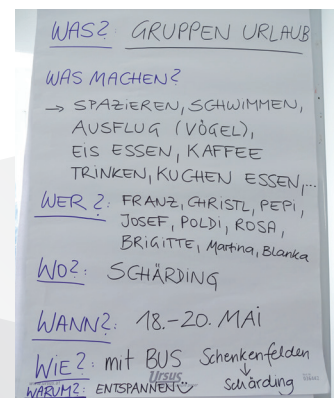 WAS?: GRUPPEN URLAUB
WAS MACHEN?
→ SPAZIEREN, SCHWIMMEN,
AUSFLUG (VÖGEL),
EIS ESSEN, KAFFEE
TRINKEN, KUCHEN ESSEN,...
WER?: FRANZ, CHRISTL, PEPI,
JOSEF, POLDI, ROSA,
BRIGITTE, Martina, Blanka
WO?: SCHÄRDING
WANN?: 18.-20. MAI
WIE?: mit BUS Schenkenfelden
↓
Ursus
WARUM?: ENTSPANNEN Schärding